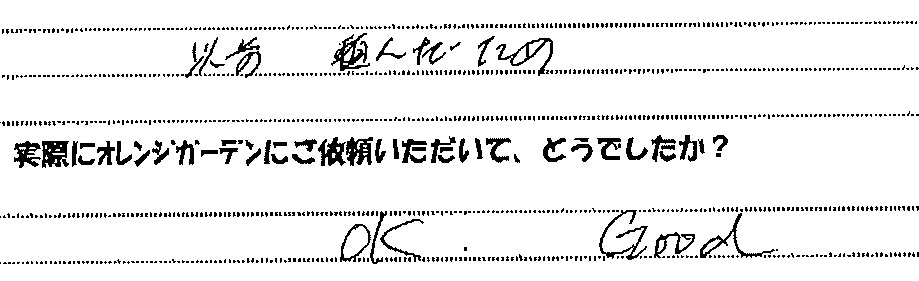 以前 頼んだため
実際にオレンジガーデンにご依頼いただいて、どうでしたか？
OK. Good